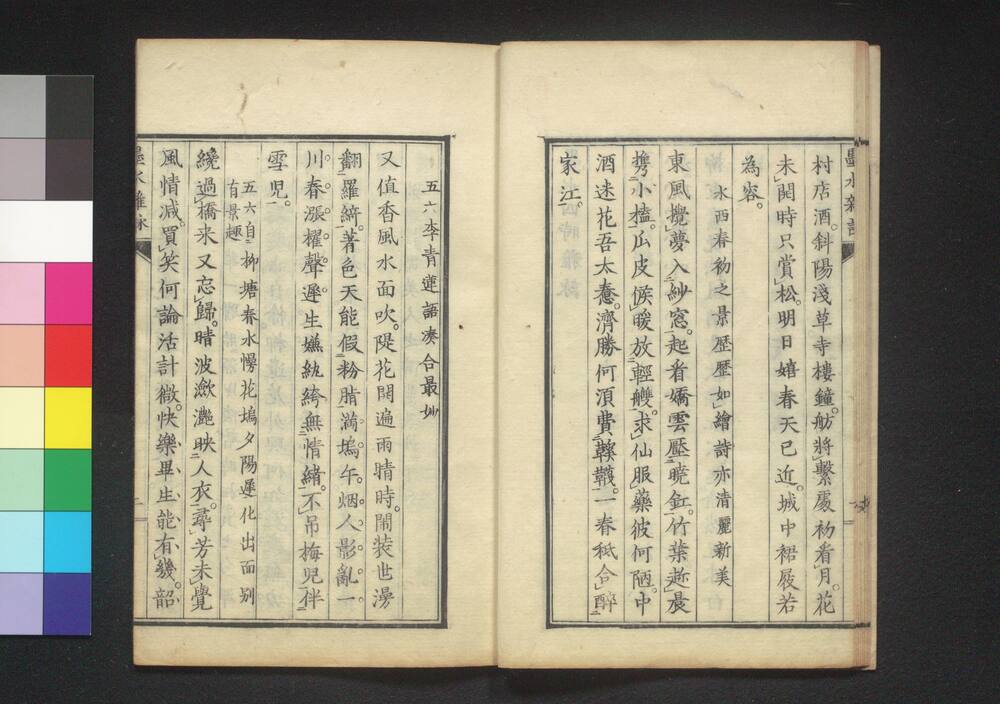 村店酒。斜陽淺草寺樓鐘。舫將繫處初看月。花
未開時只賞松。明日嬉春天已近。城中裙屐若
為容。
水西春初之景歴歴如繪詩亦清麗新美
東風攪夢入紗窓。起看嬌雲壓曉釭。竹葉趂晨
携小榼。瓜皮候暖放輕艭。求仙服藥彼何陋。中
酒迷花吾太憃。濟勝何須費鞵韈。一春秖合醉
家江。
五六李青蓮語湊合最妙
又值香風水面吹。隄花開遍雨晴時。閙装世漫
翻羅綺。著色天能假粉脂。滿塢午烟人影亂。一
川春漲櫂聲遲。生嫌紈絝無情緒。不吊梅兒伴
雪兒。
五六自柳塘春水慢花塢夕陽遲化出面別
有景趣
纔過橋来又忘歸。晴波瀲灔映人衣。尋芳未覺
風情減。買笑何論活計微。快樂畢生能有幾。韶
墨水雜詠